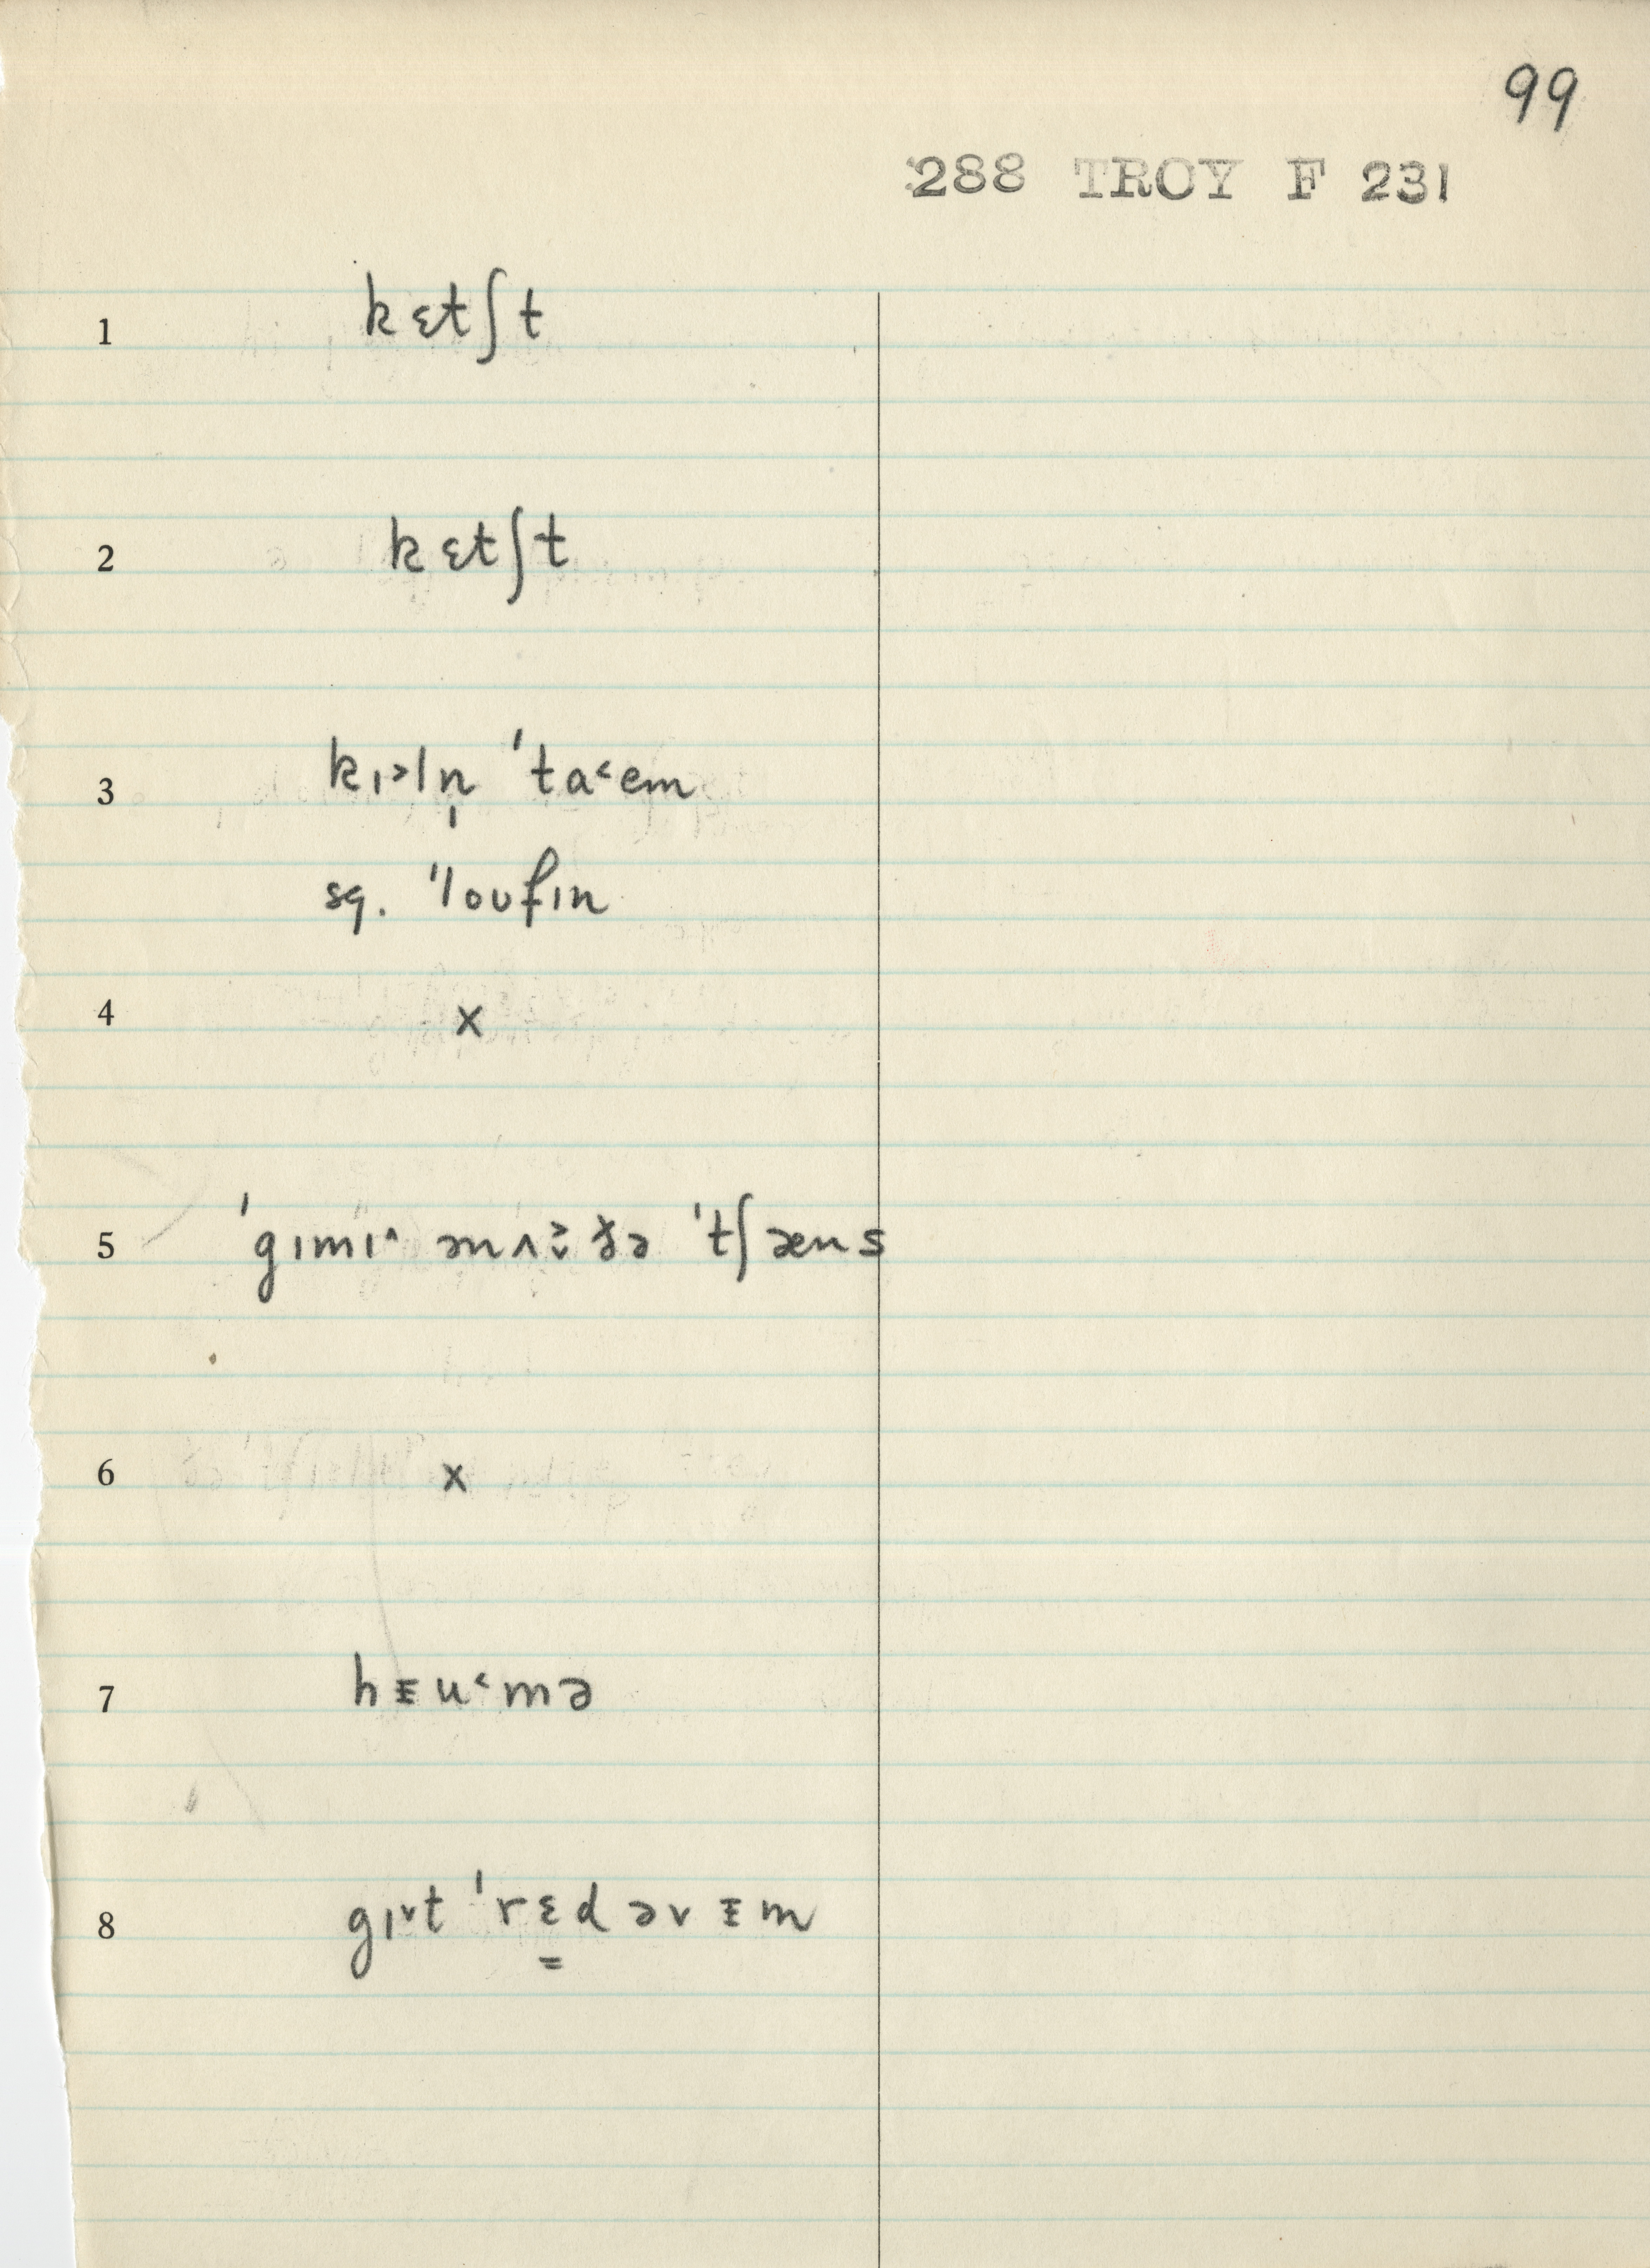 99
288 TROY F 231
1 kɛtʃt
2 kɛtʃt
3 kɪ˃ln̩ ˈta˂em
sq. ˈloufɪn
4 x
5 ˈgɪmɪ˄ ənʌ̌˃ðə ˈtʃæns
6 x
7 hɪ̵u˂mə
8 gɪ˅t ˈrɛ̳d əv ɪ̵m